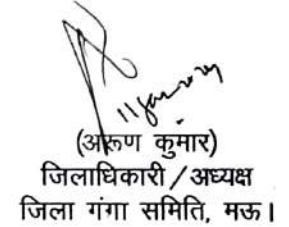 (अरूण कुमार)
जिलाधिकारी / अध्यक्ष
जिला गंगा समिति, मऊ।